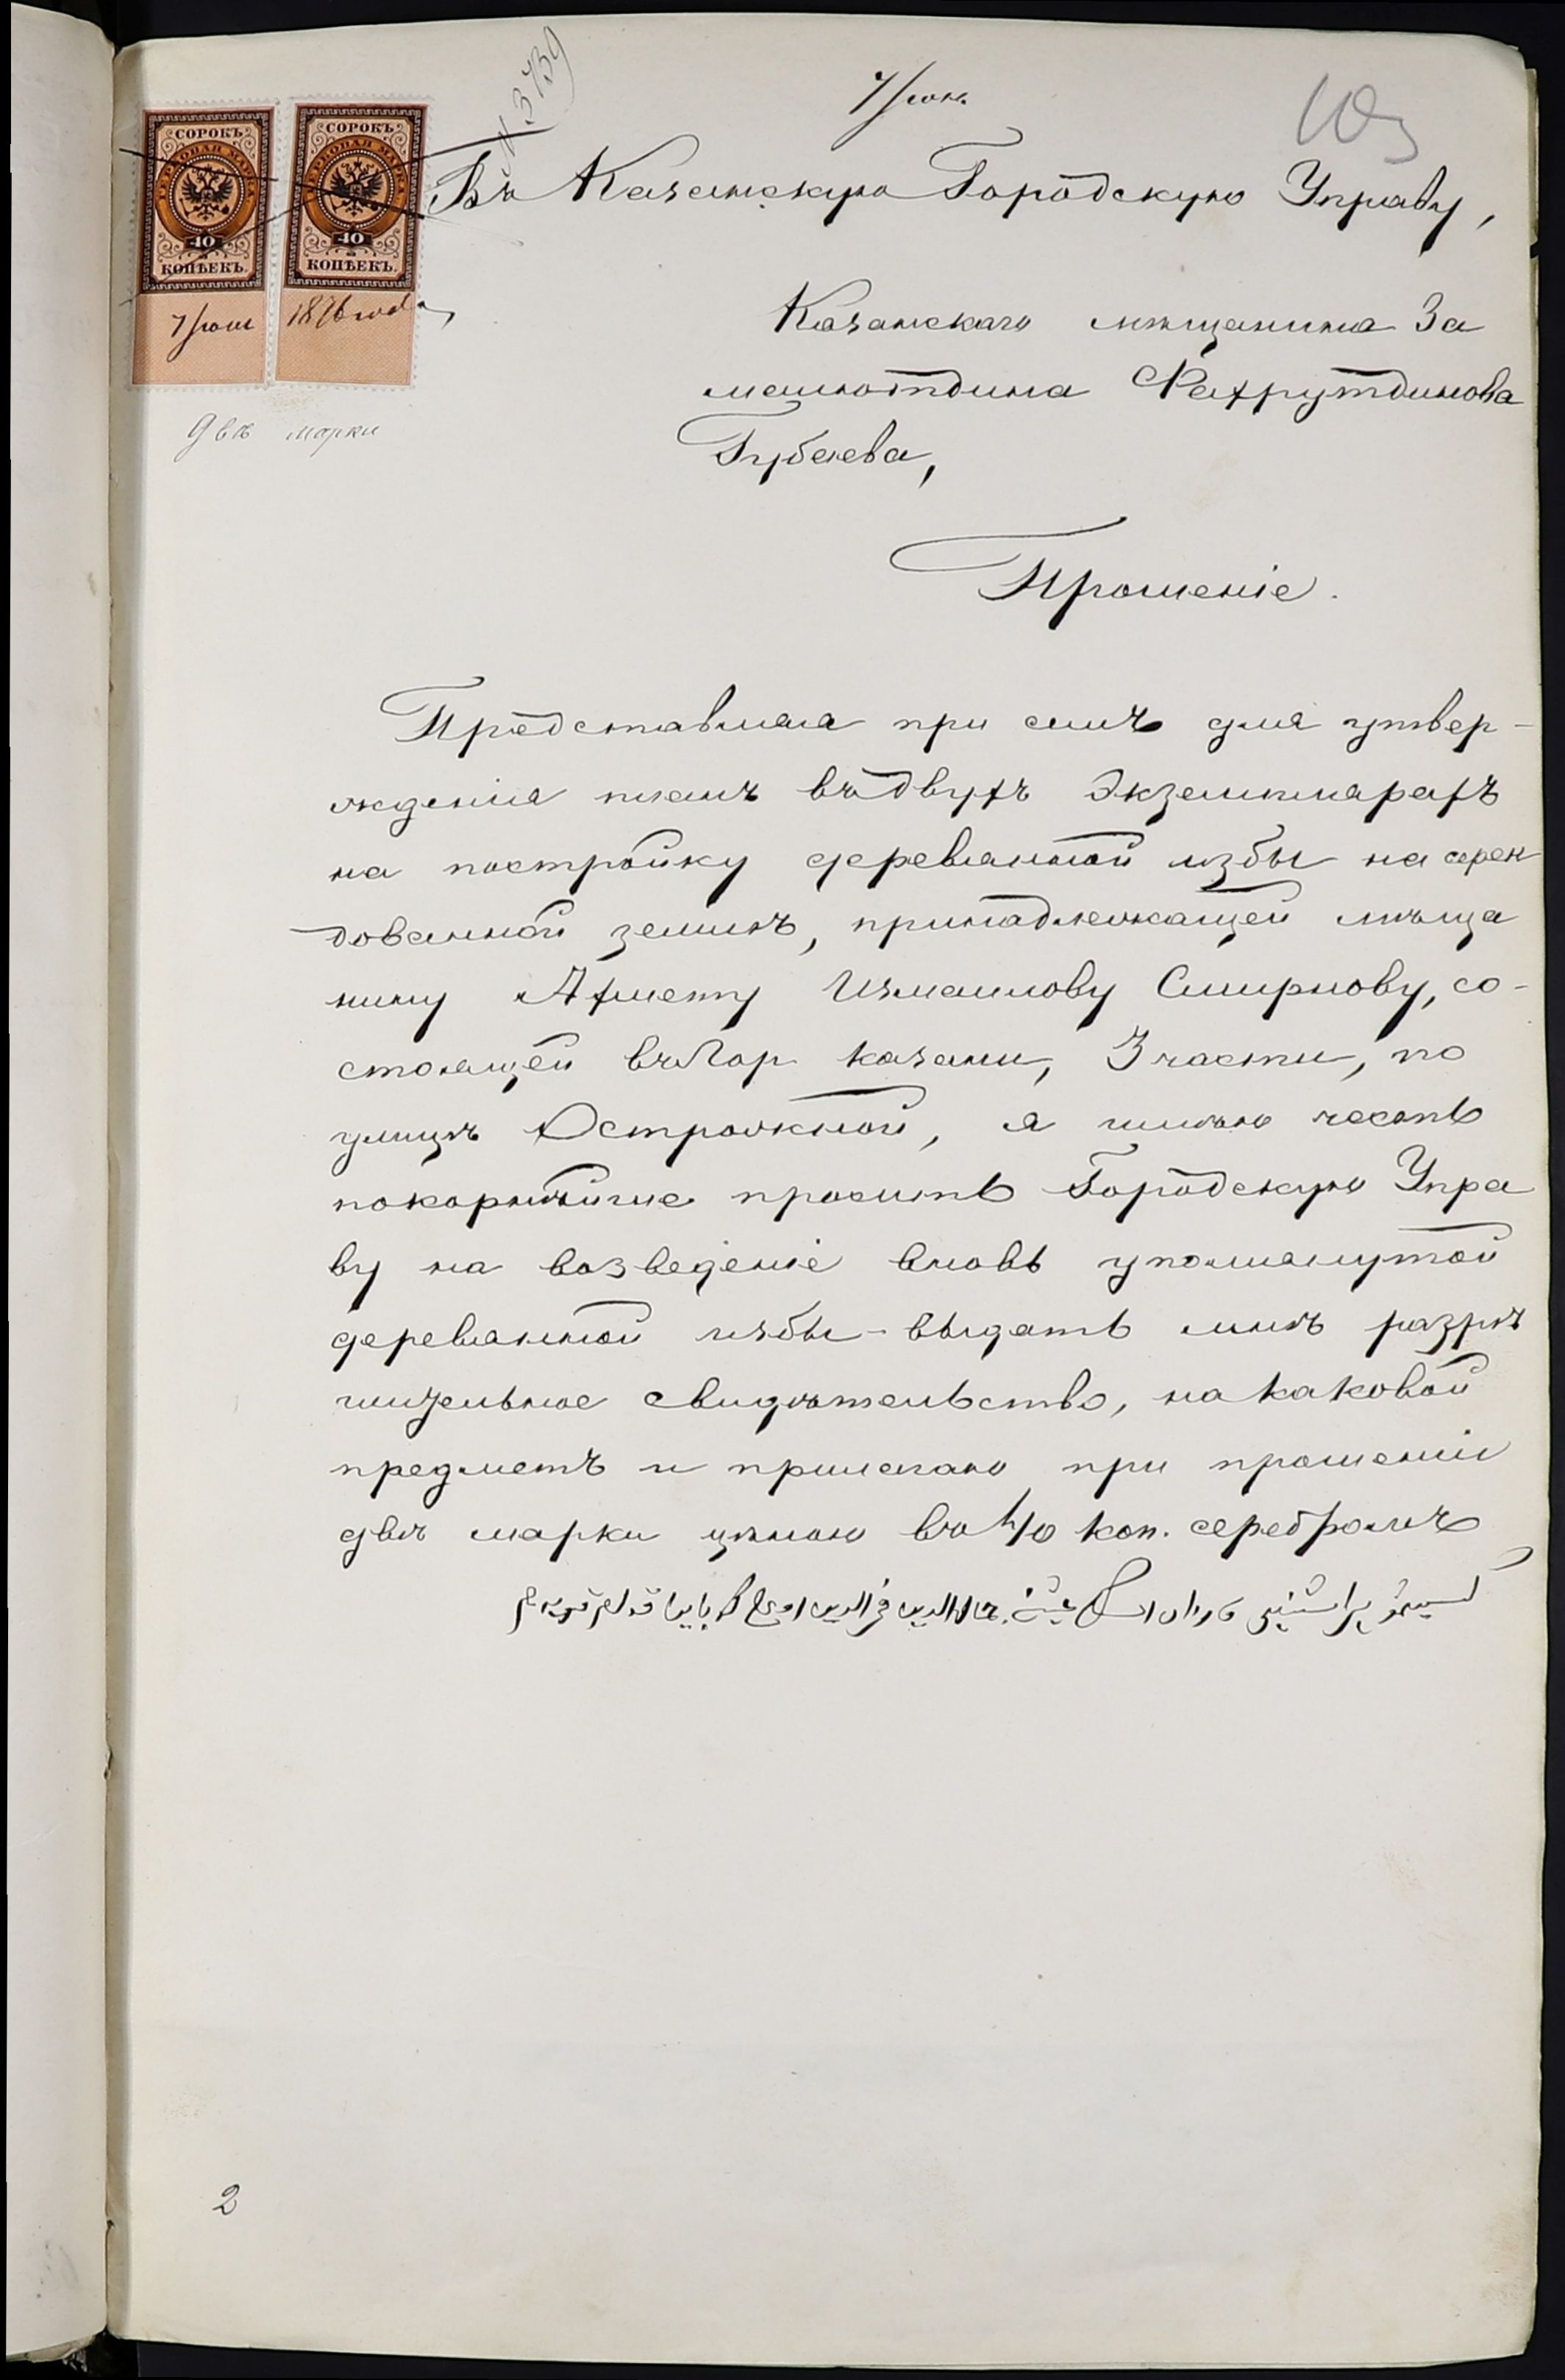 № 3739
7 Іюн.
СОРОКЪ
ГЕРБОВАЯ МАРКА
40
КОПѢЕКЪ.
СОРОКЪ
ГЕРБОВАЯ МАРКА
40
КОПѢЕКЪ.
7 Іюня 1876 года
двѣ марки
Въ Казанскую Городскую Управу,
Казанскаго мѣщанина За
малютдина Фахрутдинова
Губаева,
Прошеніе.
Представляя при семъ для утвер-
жденія планъ въ двухъ экземплярахъ
на постройку деревянной избы на арен
дованной землѣ, принадлежащей мѣща
нину Ахмету Измаилову Смирнову, со-
стоящей въ Гор. Казани, 3 части, по
улицѣ Острожной, я имѣю честь
покорнѣйше просить Городскую Упра
ву на возведеніе вновь упомянутой
деревянной избы - выдать мнѣ разрѣ
шительное свидѣтельство, на каковой
предметъ и прилагаю при прошеніи
двѣ марки цѣною въ 40 коп. серебромъ
2